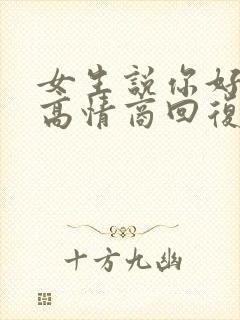 女生説你好
高情商回復
十方九幽